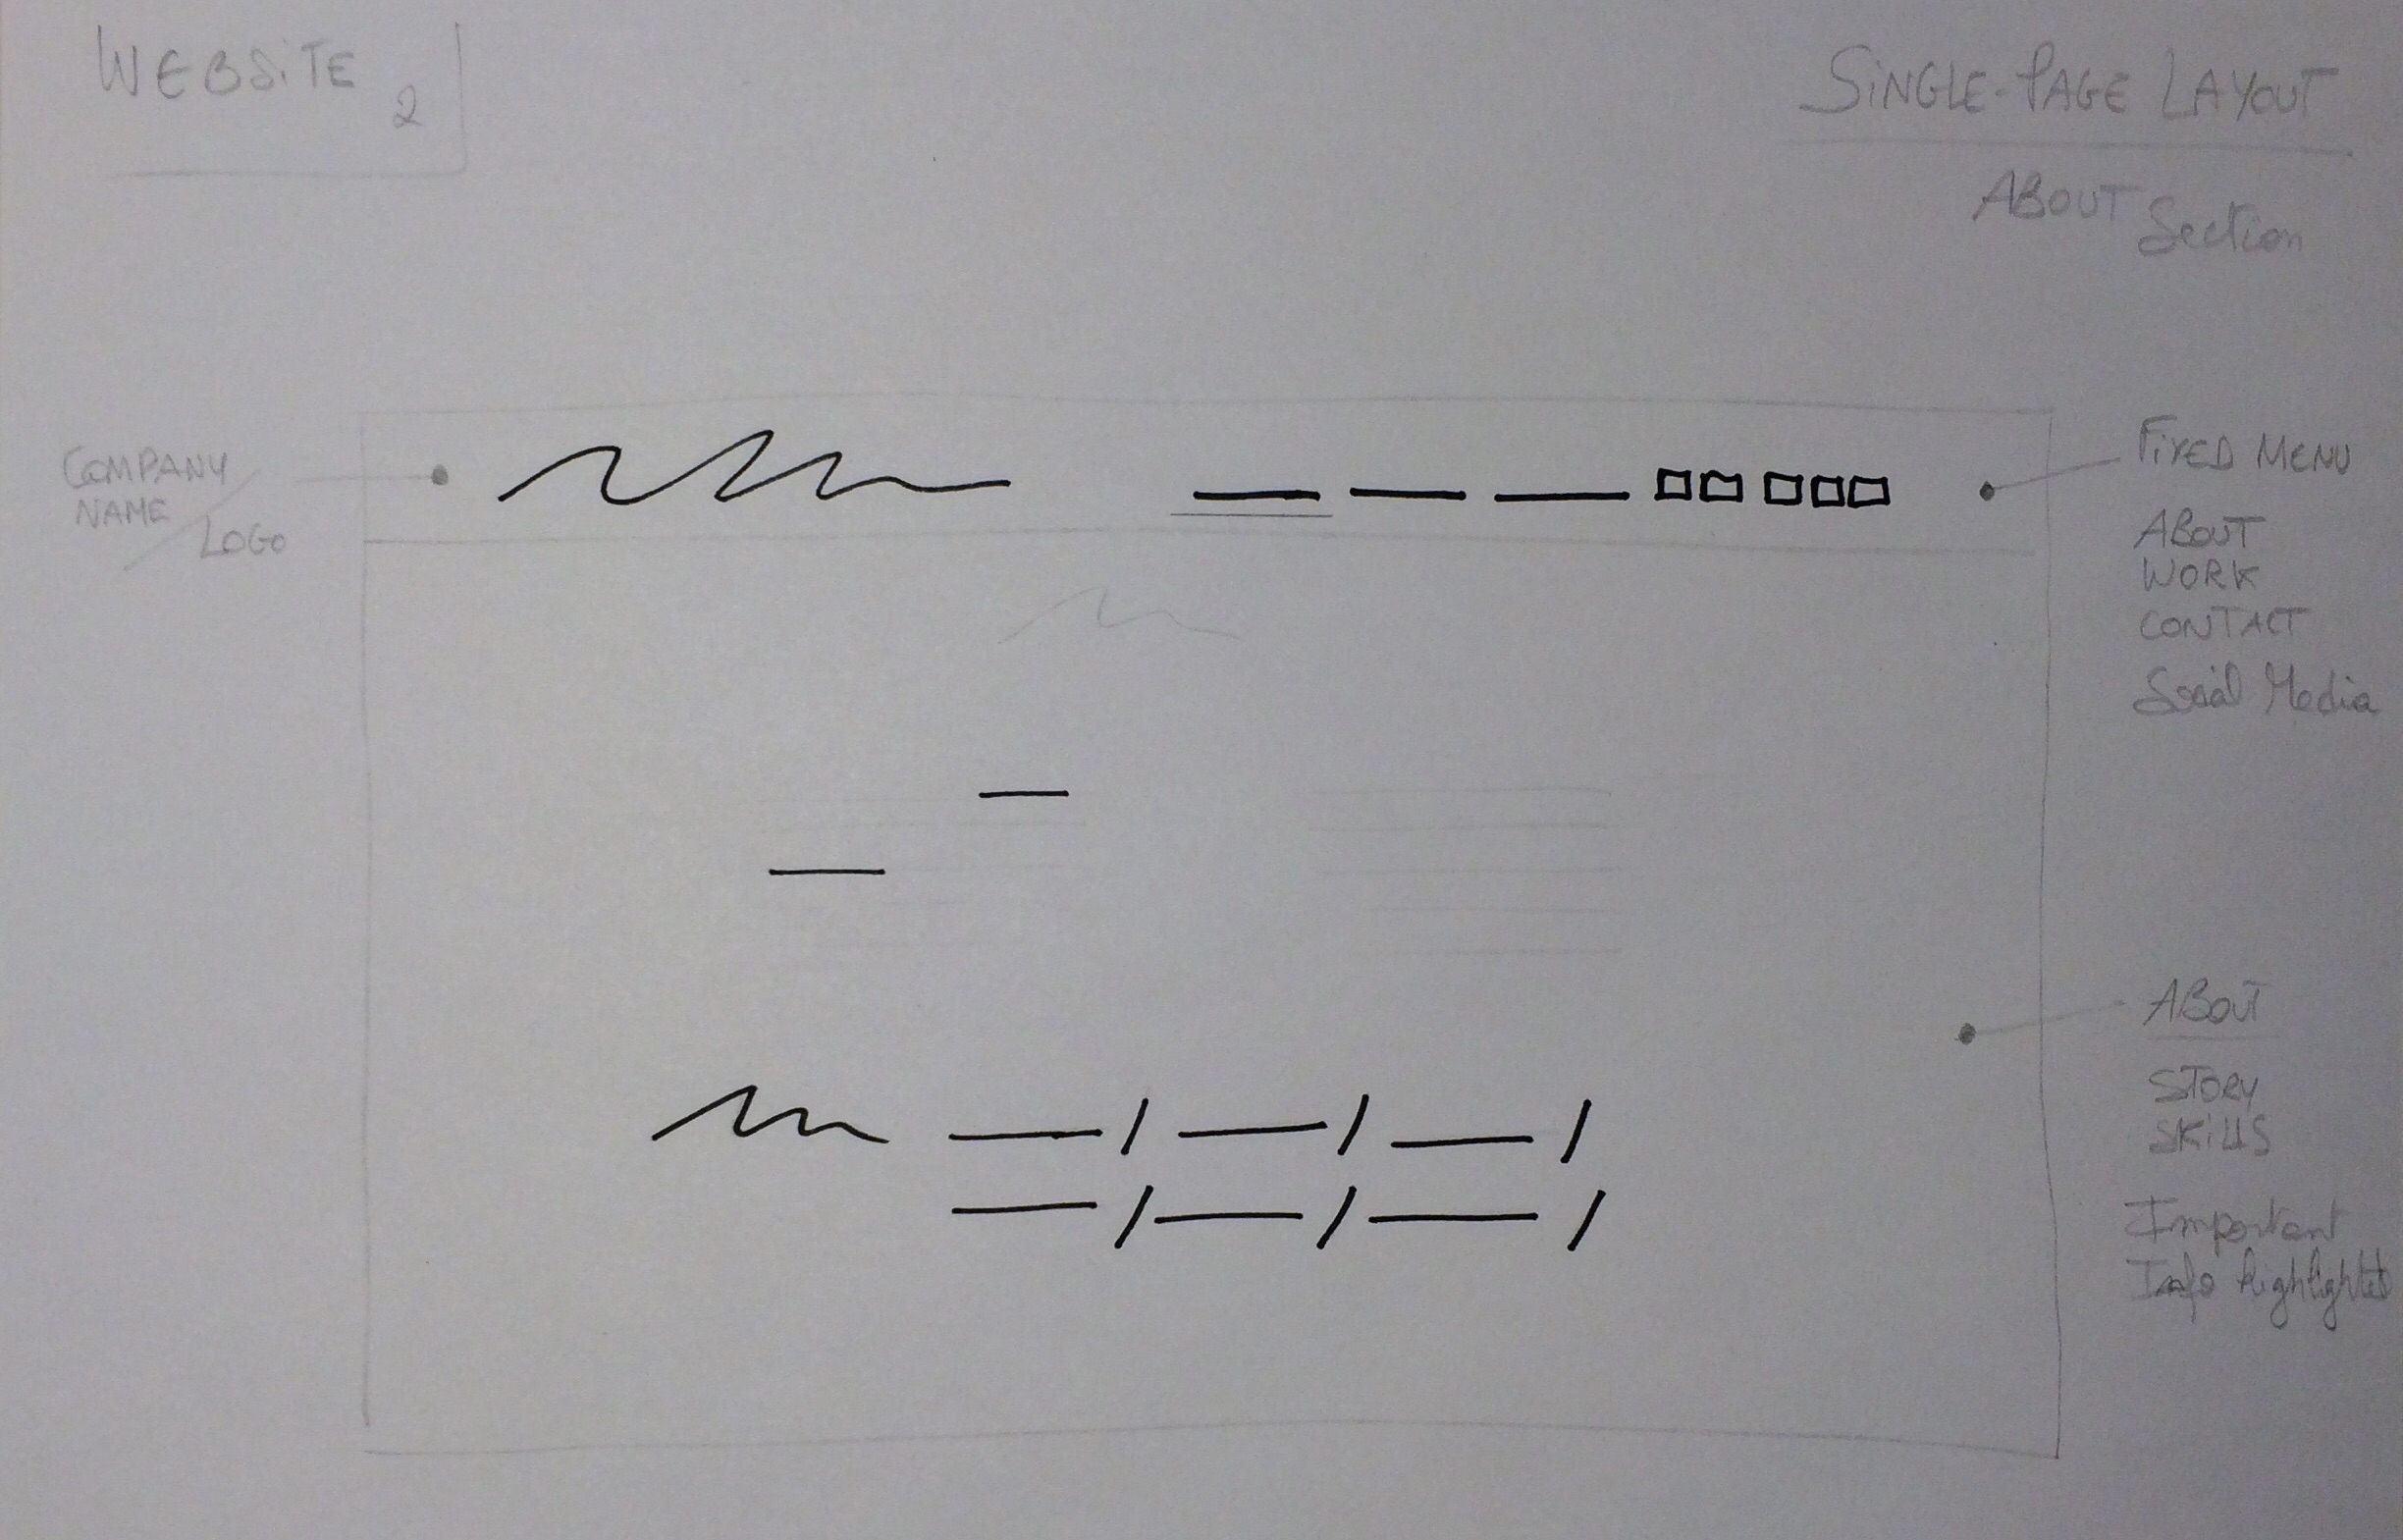 WEBSiTE 2
SiNGLE-PAGE LAYOUT
ABOUT Section
COMPANY
NAME /
LOGO
FiXED MENU
ABOUT
WORK
CONTACT
Social Media
ABOUT
STORY
SKiLLS
Important
Info highlighted